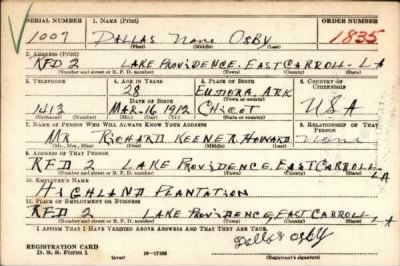 SERIAL NUMBER 1. NAME (Print) ORDER NUMBER
1007 DALLAS None OSBY 1835
(First) (Middle) (Last)
2. ADDRESS (Print)
RFD 2 LAKE PROVIDENCE, EAST CARROLL - LA
(Number and street or R. F. D. number) (Town) (County) (State)
3. TELEPHONE 4. AGE IN YEARS 5. PLACE OF BIRTH 6. COUNTRY OF CITIZENSHIP
28 EUDORA, ARK
DATE OF BIRTH
1413 MAR-16 1912 CHICOT USA
(Mo.) (Day) (Yr.)
7. NAME OF PERSON WHO WILL ALWAYS KNOW YOUR ADDRESS 8. RELATIONSHIP OF THAT PERSON
MR RICHARD KEENER HOWARD None
(Mr., Mrs., Miss) (First) (Middle) (Last)
9. ADDRESS OF THAT PERSON
RFD 2 LAKE PROVIDENCE, EAST CARROLL - LA
(Number and street or R. F. D. number) (Town) (County) (State)
10. EMPLOYER'S NAME
HIGHLAND PLANTATION
11. PLACE OF EMPLOYMENT OR BUSINESS
RFD 2 LAKE PROVIDENCE, EAST CARROLL - LA
(Number and street or R. F. D. number) (Town) (County) (State)
I AFFIRM THAT I HAVE VERIFIED ABOVE ANSWERS AND THAT THEY ARE TRUE.
REGISTRATION CARD
D. S. S. Form 1
(over) 16-17105
Dallas Osby
(Registrant's signature)